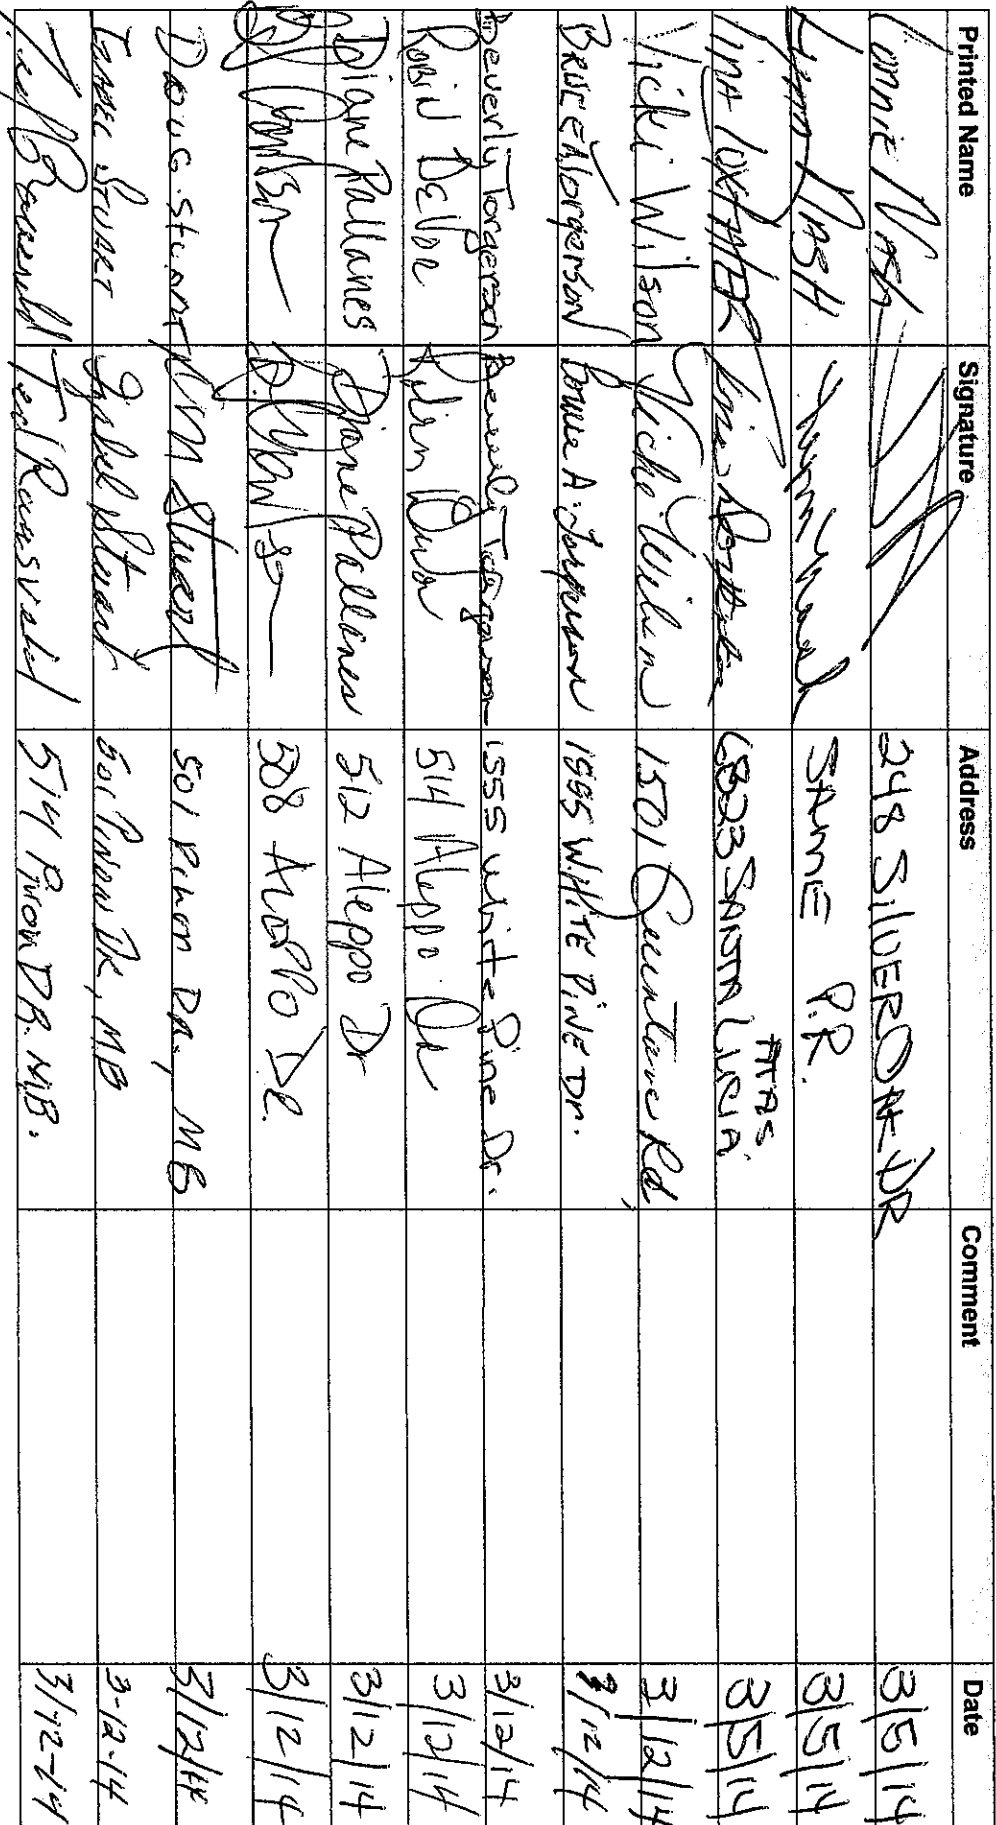 Printed Name Signature Address Comment Date
Connie Nash 248 SILVER OAK DR 3/5/14
Lynn NASH Lynn Nash SAME P.R. 3/5/14
LINA 6823 SANTA LUCIA ATAS 3/5/14
Vicki Wilson Vicki Wilson 1501 Rd 3/12/14
BRUCE A Torgerson Bruce A. Torgerson 1555 WHITE PINE Dr. 3/12/14
Beverly Torgerson Beverly Torgerson 1555 White Pine Dr. 3/12/14
ROBIN Robin 514 Aleppo Dr 3/12/14
Diane Pallanes Diane Pallanes 512 Aleppo Dr 3/12/14
508 Dr. 3/12/14
DOUG STUART Stuart 501 Pinon DR., MB 3/12/14
ISABEL STUART Isabel Stuart 501 Pinon DR, MB 3-12-14
Ted Ted 514 Pinon DR. MB. 3/12-14